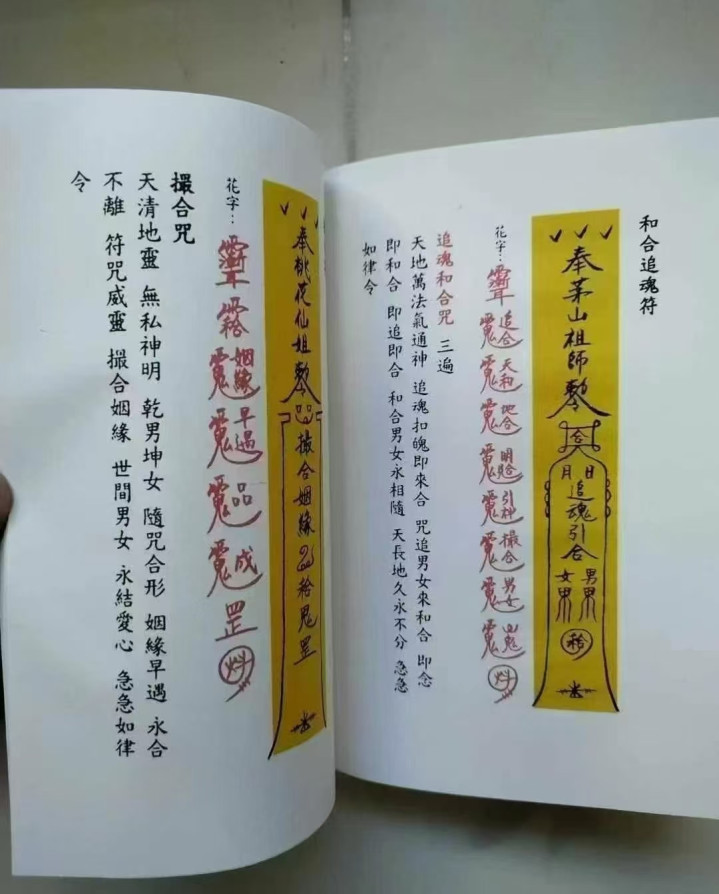 和合追魂符
奉茅山祖師勅令
日月
追魂引合
男
女
花字：
追合
天和
地合
引神
撮合
男女
追魂和合咒 三遍
天地萬法氣通神 追魂扣魄即來合 咒追男女來和合 即念
即和合 即追即合 和合男女永相隨 天長地久永不分 急急
如律令
奉桃花仙姐勅令
撮合姻緣
罡
花字：
姻緣
早遇
品
成
罡
撮合咒
天清地靈 無私神明 乾男坤女 隨咒合形 姻緣早遇 永合
不離 符咒威靈 撮合姻緣 世間男女 永結愛心 急急如律
令